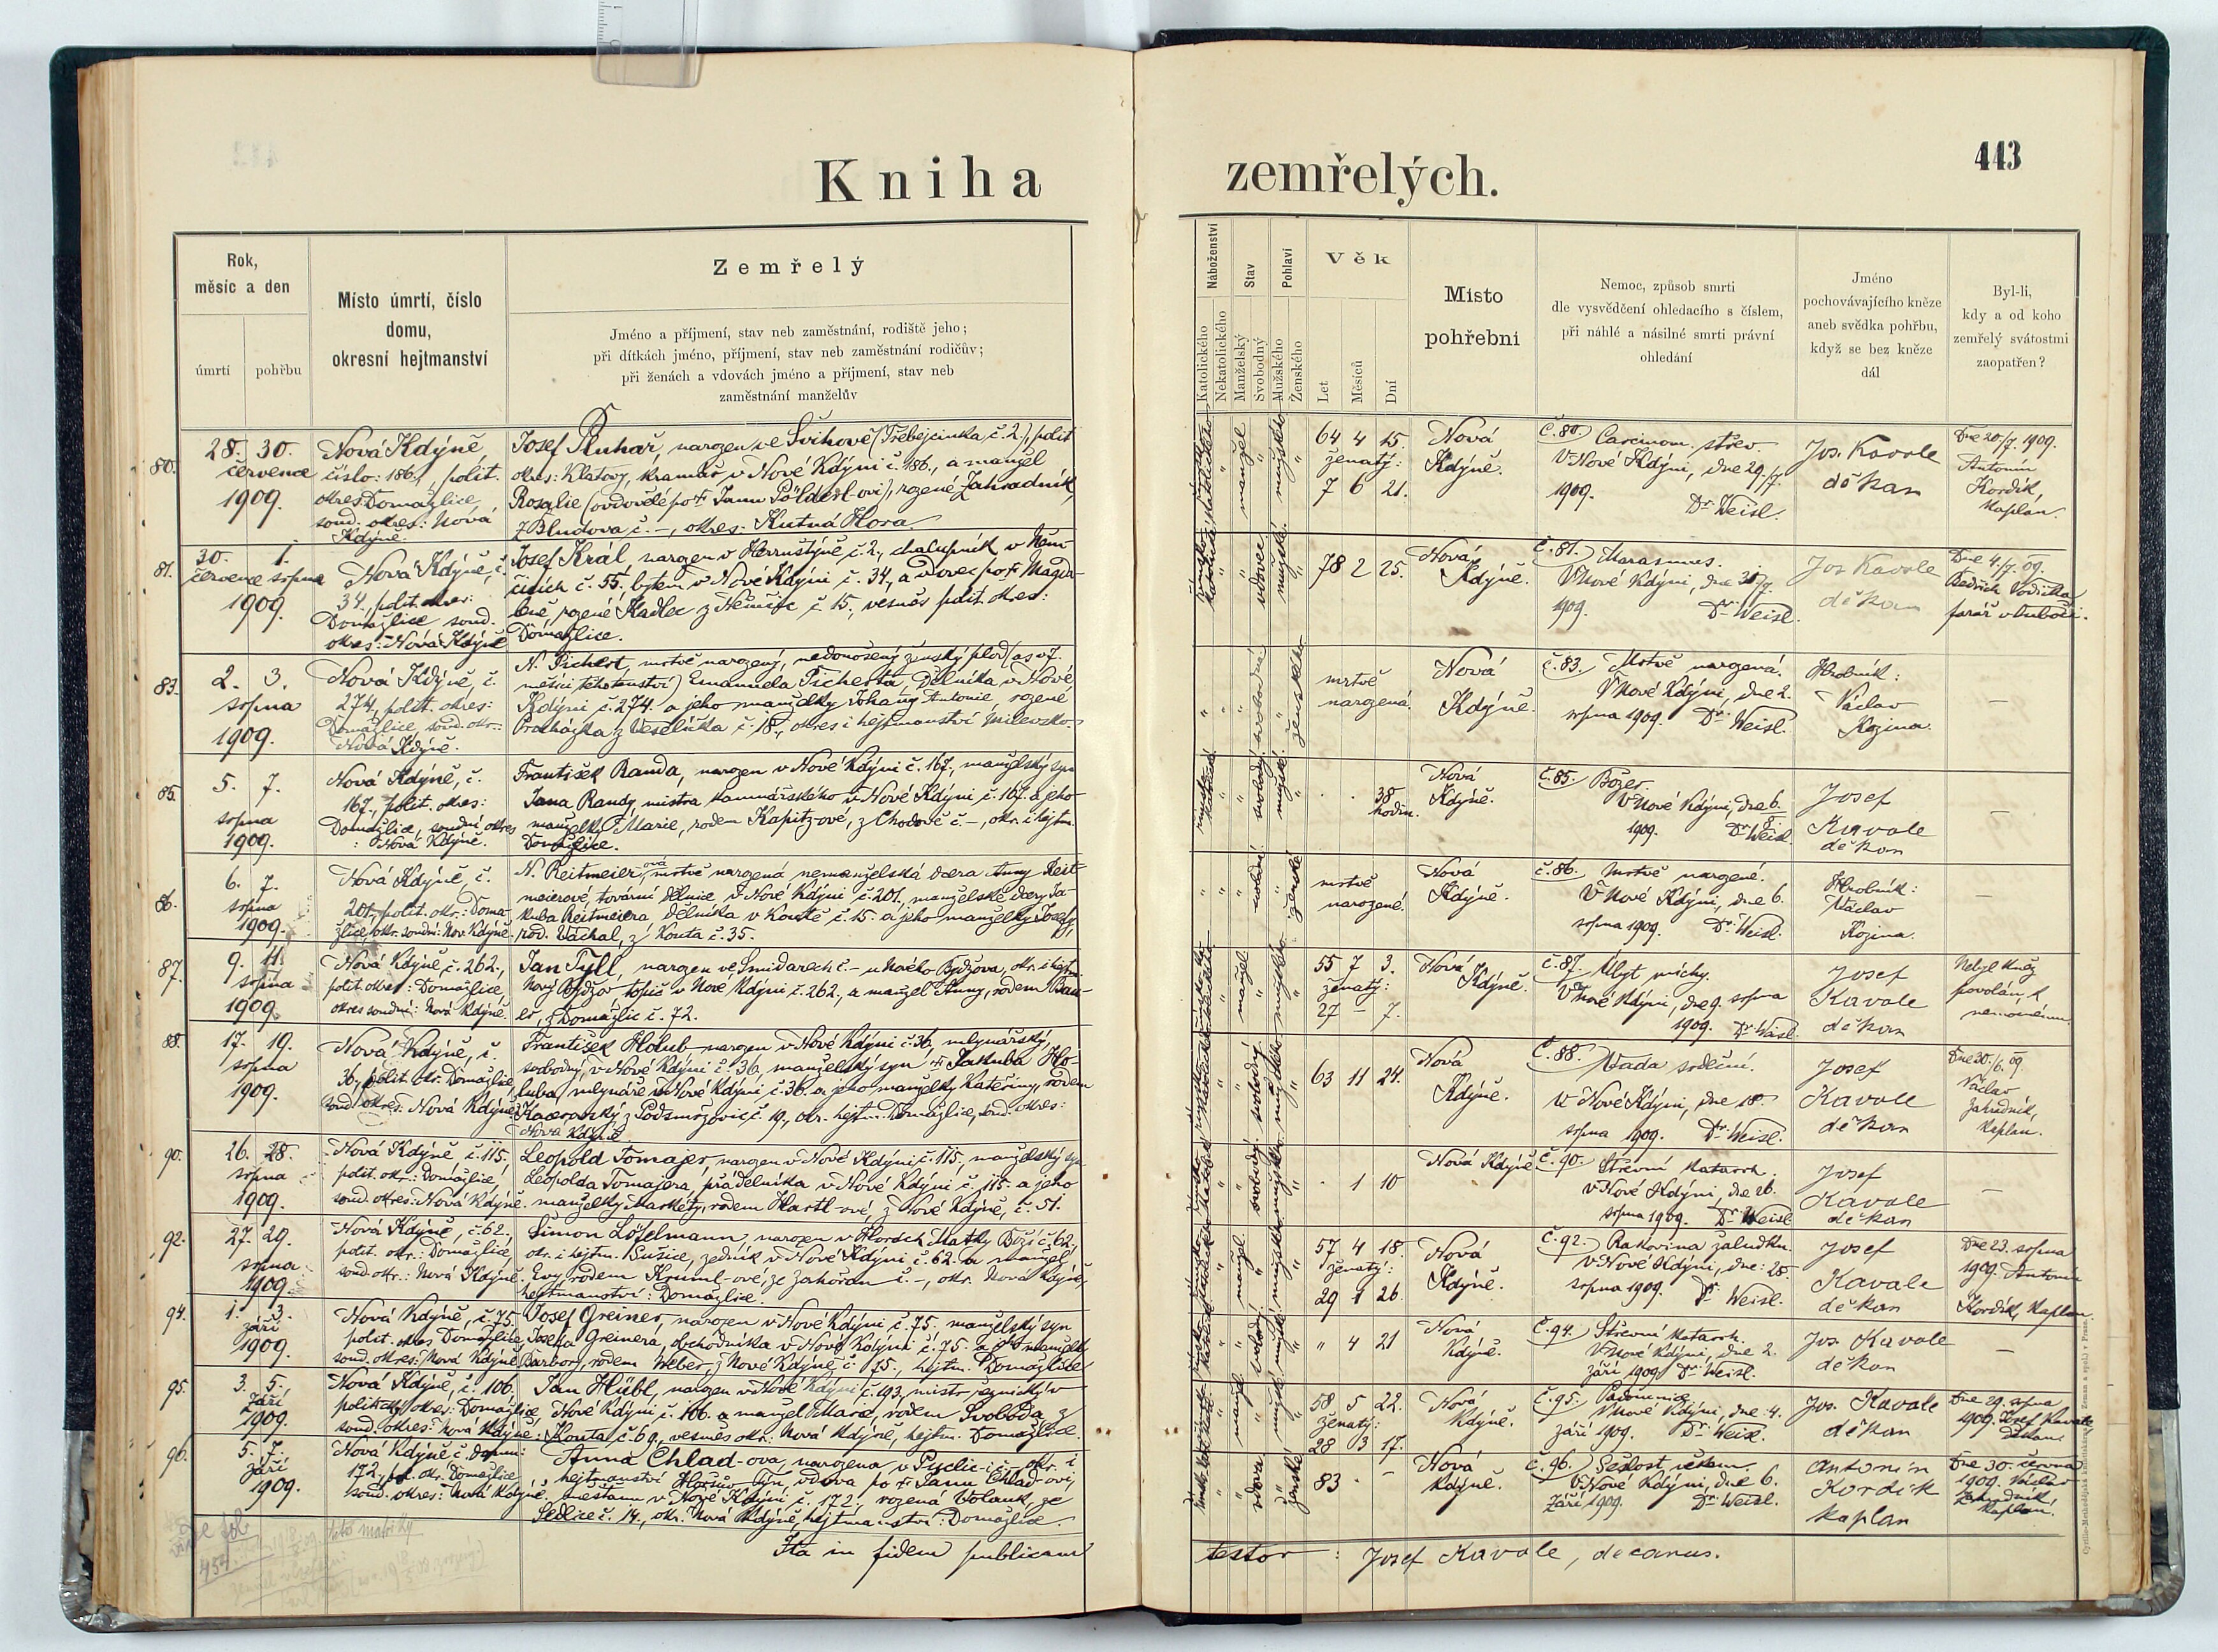 443
Kniha zemřelých.
Rok,
měsíc a den
úmrtí
pohřbu
Místo úmrtí, číslo
domu,
okresní hejtmanství
Zemřelý
Jméno a příjmení, stav neb zaměstnání, rodiště jeho;
při dítkách jméno, příjmení, stav neb zaměstnání rodičův;
při ženách a vdovách jméno a příjmení, stav neb
zaměstnání manželův
Náboženství
Katolického
Nekatolického
Stav
Manželský
Svobodný
Pohlaví
Mužského
Ženského
Věk
Let
Měsíců
Dní
Místo
pohřební
Nemoc, způsob smrti
dle vysvědčení ohledacího s číslem,
při náhlé a násilné smrti právní
ohledání
Jméno
pochovávajícího kněze
aneb svědka pohřbu,
když se bez kněze
dál
Byl-li,
kdy a od koho
zemřelý svátostmi
zaopatřen?
80.
28. 30.
července
1909.
Nová Kdýně,
číslo: 186., polit.
okres Domažlice,
soud. okres: Nová
Kdýně.
Josef Pluhař, narozen ve Švihově (Třebejcinka č. 2.), polit.
okres: Klatovy, kramář v Nové Kdýni č. 186., a manžel
Rosalie (ovdovělé po † Janu Pölderl-ovi), rozené Zahradník,
z Bludova č. –, okres. Kutná Hora.
manžel
mužské
64 4 15.
ženatý:
7 6 21.
Nová
Kdýně.
č. 80. Carcinom. střev.
V Nové Kdýni, dne 29./7.
1909.
Dr. Weisl.
Jos. Kavale
děkan
Dne 20./7. 1909.
Antonín
Kordík,
kaplan.
81.
30. 1.
července srpna
1909.
Nová Kdýně, č.
34., polit. okres:
Domažlice soud.
okres: Nová Kdýně
Josef Král, narozen v Herrnštýně č. 2., chalupník v Něm-
čicích č. 55., bytem v Nové Kdýni č. 34., a vdovec po † Magda-
leně, rozené Kadlec z Němčic č. 15, vesměs polit. okres:
Domažlice.
vdovec
mužské
78 2 25.
Nová
Kdýně.
č. 81. Marasmus.
V Nové Kdýni, dne 31/7.
1909.
Dr. Weisl.
Jos Kavale
děkan
Dne 4./7. 09.
Bedřich Vodička
farář v Luboši.
83.
2. 3.
srpna
1909.
Nová Kdýně, č.
274., polit. okres:
Domažlice, soud. okr.:
Nová Kdýně.
N. Pichert, mrtvě narozený, nedonošený ženský plod (as v 7.
měsíci těhotenství) Emanuela Picherta, dělníka v Nové
Kdýni č. 274. a jeho manželky Johany Antonie rozené
Procházka z Veselíčka č. 18., okres i hejtmanství Milevsko.
svobodná
ženského
mrtvě
narozená.
Nová
Kdýně.
č. 83. Mrtvě narozená.
V Nové Kdýni, dne 2.
srpna 1909. Dr. Weisl.
Hrobník:
Václav
Kozina.
–
85.
5. 7.
srpna
1909.
Nová Kdýně, č.
167., polit. okres:
Domažlice, soudní okres
: Nová Kdýně.
František Randa, narozen v Nové Kdýni č. 167., manželský syn
Jana Randy, mistra kamnářského v Nové Kdýni č. 167. a jeho
manželky Marie, rodem Kapitz-ové, z Chodové č. –, okr. i hejtm.
Domažlice.
mužské
38
hodin.
Nová
Kdýně.
č. 85. Božec.
V Nové Kdýni, dne 6./8.
1909. Dr. Weisl
Josef
Kavale
děkan
–
86.
6. 7.
srpna
1909.
Nová Kdýně, č.
201., polit. okr.: Doma-
žlice, okr. soudní: Nov. Kdýně.
N. Reitmeier-ová, mrtvě narozená nemanželská dcera Anny Reit-
meierové, tovární dělnice v Nové Kdýni č. 201., manželské dcery Ja-
kuba Reitmeiera, dělníka v Koutě č. 15. a jeho manželky Josefy,
rod. Váchal, z Kouta č. 35.
svobodná
ženské
mrtvě
narozené.
Nová
Kdýně.
č. 86. Mrtvě narozené.
V Nové Kdýni, dne 6.
srpna 1909. Dr. Weisl.
Hrobník:
Václav
Kozina.
–
87.
9. 11.
srpna
1909.
Nová Kdýně, č. 262.,
polit. okres: Domažlice,
okres soudní: Nová Kdýně.
Jan Tyll, narozen ve Smidarech č. – u Nového Bydžova, okr. i hejtm.
Nový Bydžov topič v Nové Kdýni č. 262., a manžel Anny, rodem Bau-
er, z Domažlic č. 72.
manžel
55 7 3.
ženatý:
27 – 7.
Nová
Kdýně.
č. 87. Ulyt míchy.
V Nové Kdýni, dne 9. srpna
1909. Dr. Weisl.
Josef
Kavale
děkan
Nebyl kněz
povolán k
nemocnému.
88.
17. 19.
srpna
1909.
Nová Kdýně, č.
36., polit. okr. Domažlice,
soud. okres: Nová Kdýně.
František Holub narozen v Nové Kdýni č. 36. mlynářský,
svobodný v Nové Kdýni č. 36., manželský syn † Jakuba Ho-
luba, mlynáře v Nové Kdýni č. 36. a jeho manželky Kateřiny, rodem
Kacerovský z Podzmrzovic č. 19., okr. hejtm. Domažlice, soud. okres:
Nová Kdýně
svobodný
63 11 24.
Nová
Kdýně.
č. 88. Vada srdeční.
V Nové Kdýni, dne 18.
srpna 1909. Dr. Weisl.
Josef
Kavale
děkan
Dne 30./6. 09
Václav
Zahradník,
kaplan.
90.
26. 28.
srpna
1909.
Nová Kdýně č. 115.
polit. okr.: Domažlice,
soud. okres: Nová Kdýně.
Leopold Tomajer, narozen v Nové Kdýni č. 115., manželský syn
Leopolda Tomajera, přádelníka v Nové Kdýni č. 115. a jeho
manželky Markéty, rodem Hartl-ové, z Nové Kdýně, č. 51.
svobodný
1 10
Nová Kdýně
č. 90. Střevní katarrh.
V Nové Kdýni, dne 26.
srpna 1909. Dr. Weisl
Josef
Kavale
děkan
–
92.
27. 29.
srpna
1909.
Nová Kdýně, č. 62.,
polit. okr.: Domažlice,
soud. okr.: Nová Kdýně.
Šimon Löfelmann, narozen v Horách Matky Boží č. 62.,
okr. i hejtm. Sušice, zedník v Nové Kdýni č. 62. a manžel
Evy, rodem Kruml-ové, ze Zahořan č. –, okr. Nová Kdýně,
hejtmanství: Domažlice.
manžel
57 4 18.
ženatý:
29 1 26.
Nová
Kdýně.
č. 92. Rakovina žaludku.
v Nové Kdýni, dne: 28.
srpna 1909. Dr. Weisl.
Josef
Kavale
děkan
Dne 23. srpna
1909. Antonín
Kordík, kaplan
94.
1. 3.
září
1909.
Nová Kdýně, č. 75.
polit. okres Domažlice,
soud. okres: Nová Kdýně
Josef Greiner, narozen v Nové Kdýni č. 75. manželský syn
Josefa Greinera, obchodníka v Nové Kdýni č. 75. a jeho manželky
Barbory, rodem Weber, z Nové Kdýně, č. 175., hejtm. Domažlice
" 4 21
Nová
Kdýně.
č. 94. Střevní katarrh.
V Nové Kdýni, dne 2.
září 1909 Dr. Weisl.
Jos. Kavale
děkan
–
95.
3. 5.
září
1909.
Nová Kdýně, č. 106.
politický okres: Domažlice
soud. okres: Nová Kdýně:
Jan Hübl, narozen v Nové Kdýni č. 193. mistr řeznický v
Nové Kdýni č. 106. a manžel Marie, rodem Svoboda, z
Kouta č. 69., vesměs okr.: Nová Kdýně, hejtm. Domažlice.
manžel
58 5 22.
ženatý:
28 3 17.
Nová
Kdýně.
č. 95.
V Nové Kdýni, dne 4.
září 1909. Dr. Weisl.
Jos. Kavale
děkan
Dne 29. srpna
1909. Josef Kavale,
děkan.
96.
5. 7.
září
1909.
Nová Kdýně č. domu:
172., pol. okr. Domažlice
soud. okres: Nová Kdýně.
Anna Chlad-ova, narozena v Pyclic-i č. –, okr. i
hejtmanství Horšův Týn, vdova po † Janu Chlad-ovi,
měšťanu v Nové Kdýni č. 172., rozená Volauk, ze
Sedlice č. 14., okr. Nová Kdýně, hejtmanství: Domažlice.
vdova
ženské
83 . –
Nová
Kdýně.
č. 96. Sešlost věkem.
V Nové Kdýni, dne 6.
září 1909. Dr. Weisl.
Antonín
Kordík
kaplan
Dne 30. června
1909. Václav
Zahradník,
kaplan.
Ita in fidem publicam
testor : Josef Kavale, decanus.
této matriky
457